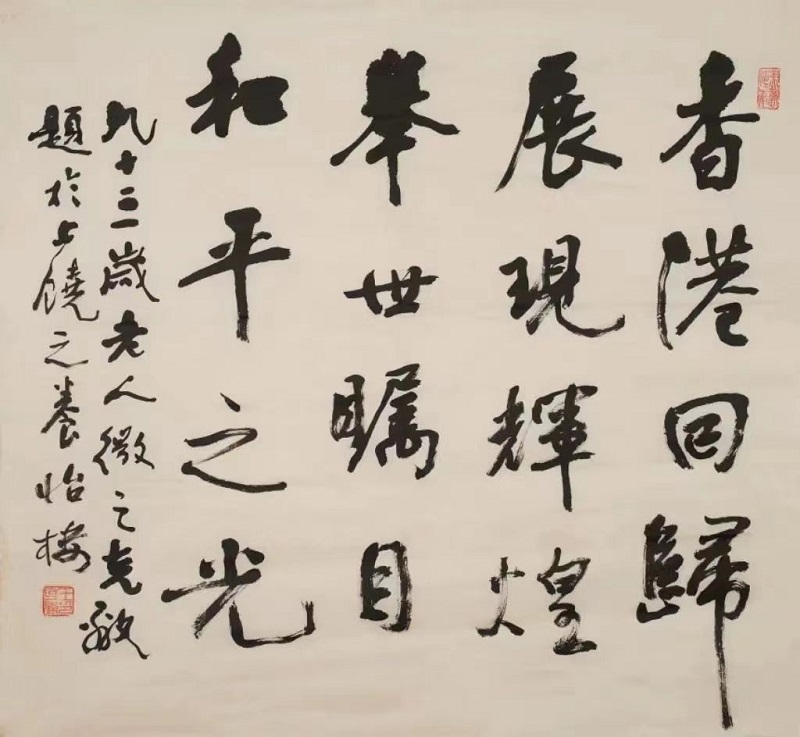 香港回歸
展現輝煌
舉世瞩目
和平之光
九十三歲老人微之克敏
題於上饒之養怡樓